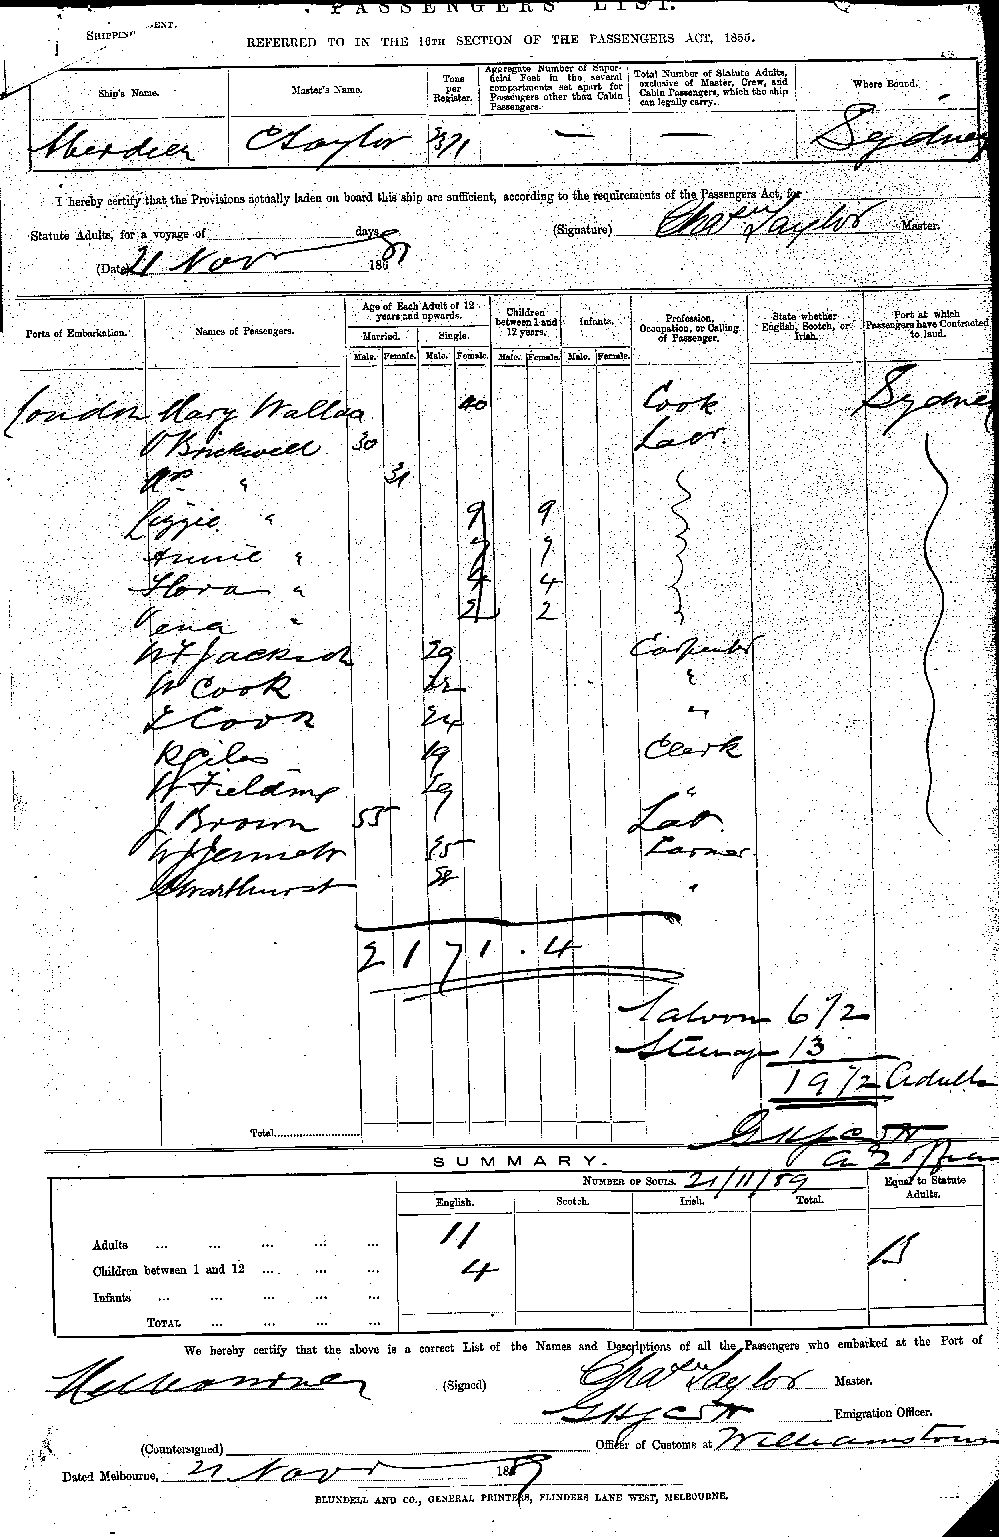 PASSENGERS' LIST.
SHIPPING
REFERRED TO IN THE 16TH SECTION OF THE PASSENGERS ACT, 1855.
Ship's Name. Master's Name. Tons per Register. Aggregate Number of Superficial Feet in the several compartments set apart for Passengers other than Cabin Passengers. Total Number of Statute Adults, exclusive of Master, Crew, and Cabin Passengers, which the ship can legally carry. Where Bound.
Aberdeen C Taylor 2371 — — Sydney
I hereby certify that the Provisions actually laden on board this ship are sufficient, according to the requirements of the Passengers Act, for
Statute Adults, for a voyage of days (Signature) Chas Taylor Master.
(Date) 21 Novr 1889
Ports of Embarkation. Names of Passengers. Age of Each Adult of 12 years and upwards. Children between 1 and 12 years. Infants. Profession, Occupation, or Calling of Passenger. State whether English, Scotch, or Irish. Port at which Passengers have Contracted to land.
Married. Single.
Male. Female. Male. Female. Male. Female. Male. Female.
London Mary Wallace 40 Cook Sydney
Brickwell 30 Labr
Mrs " 31
Lizzie " 9 9
Annie " 7 7
Flora " 4 4
Vena " 2 2
W Jackson 29 Carpenter
W Cook 22 "
Cook 24 "
R Giles 19 Clerk
W Fielding 29 "
J Brown 55 Lab
W J 25 Farmer
"
2 1 7 1 . 4
Saloon 6 1/2
Steerage 13
19 1/2 Adults
Total
SUMMARY.
NUMBER OF SOULS. 21/11/89 Equal to Statute Adults.
English. Scotch. Irish. Total.
Adults ... ... ... ... ... 11 13
Children between 1 and 12 ... ... ... 4
Infants ... ... ... ... ...
TOTAL ... ... ... ...
We hereby certify that the above is a correct List of the Names and Descriptions of all the Passengers who embarked at the Port of
Melbourne (Signed) Chas Taylor Master.
Emigration Officer.
(Countersigned) Officer of Customs at Williamstown
Dated Melbourne, 21 Novr 1889
BLUNDELL AND CO., GENERAL PRINTERS, FLINDERS LANE WEST, MELBOURNE.